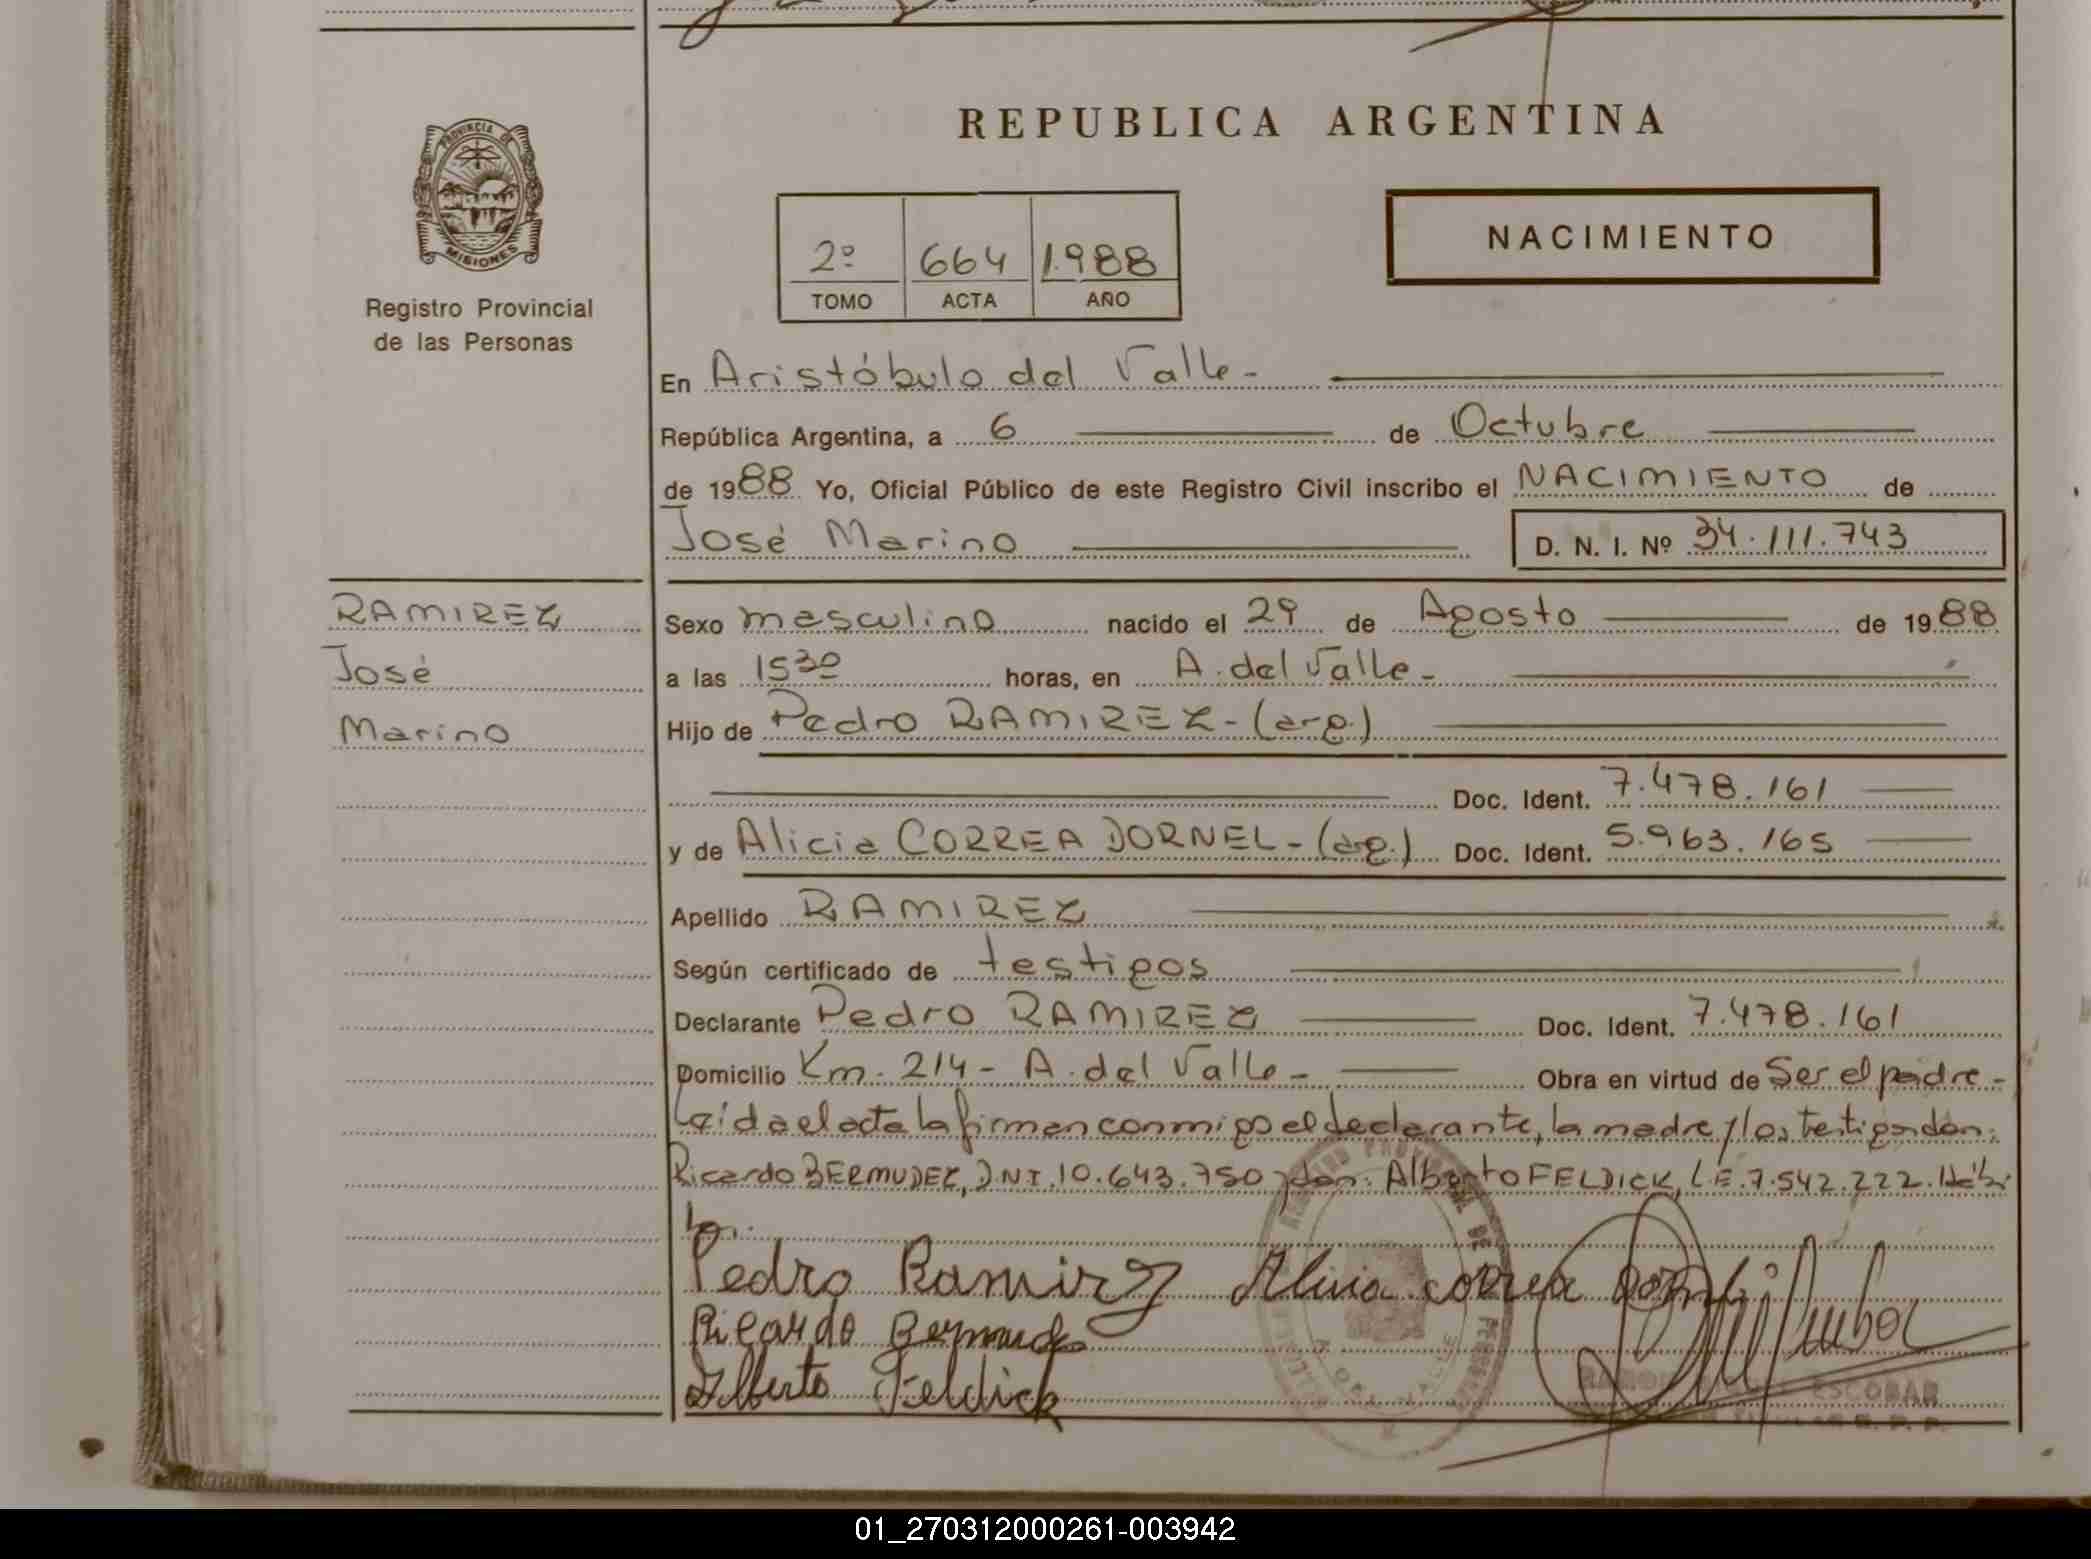 PROVINCIA DE
MISIONES
Registro Provincial
de las Personas
REPUBLICA ARGENTINA
2º 664 1.988
TOMO ACTA AÑO
NACIMIENTO
En Aristóbulo del Valle -
República Argentina, a 6 de Octubre
de 1988 Yo, Oficial Público de este Registro Civil inscribo el NACIMIENTO de
José Marino D. N. I. Nº 34.111.743
RAMIREZ
José
Marino
Sexo masculino nacido el 29 de Agosto de 1988
a las 15 30 horas, en A. del Valle -
Hijo de Pedro RAMIREZ - (arg.)
Doc. Ident. 7.478.161
y de Alicia CORREA DORNEL - (arg.) Doc. Ident. 5.963.165
Apellido RAMIREZ
Según certificado de testigos
Declarante Pedro RAMIREZ Doc. Ident. 7.478.161
Domicilio Km. 214 - A. del Valle - Obra en virtud de Ser el padre -
Leída el acta la firman conmigo el declarante, la madre y los testigos don:
Ricardo BERMUDEZ, D.N.I. 10.643.750 y don: Alberto FELDICK, L.E. 7.542.222. Hábi
les.
Pedro Ramirez Alicia correa
Ricardo Bermudez
Alberto Feldick
A. DEL VALLE
ESCOBAR
01_270312000261-003942